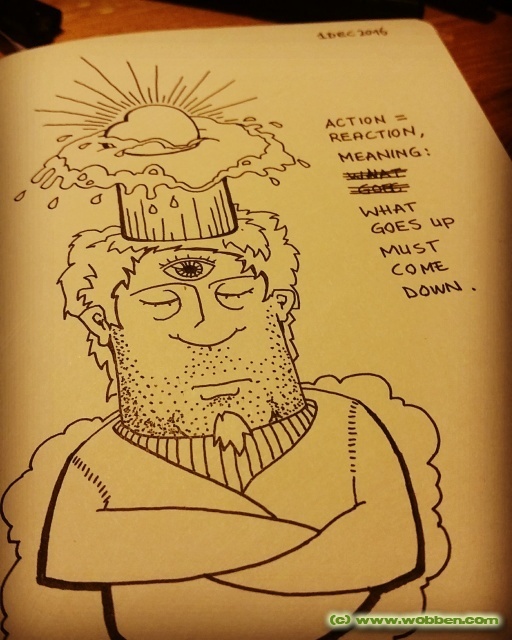 1 DEC 2016
ACTION =
REACTION,
MEANING:
WHAT
GOES
WHAT
GOES UP
MUST
COME
DOWN.
(c) www.wobben.com